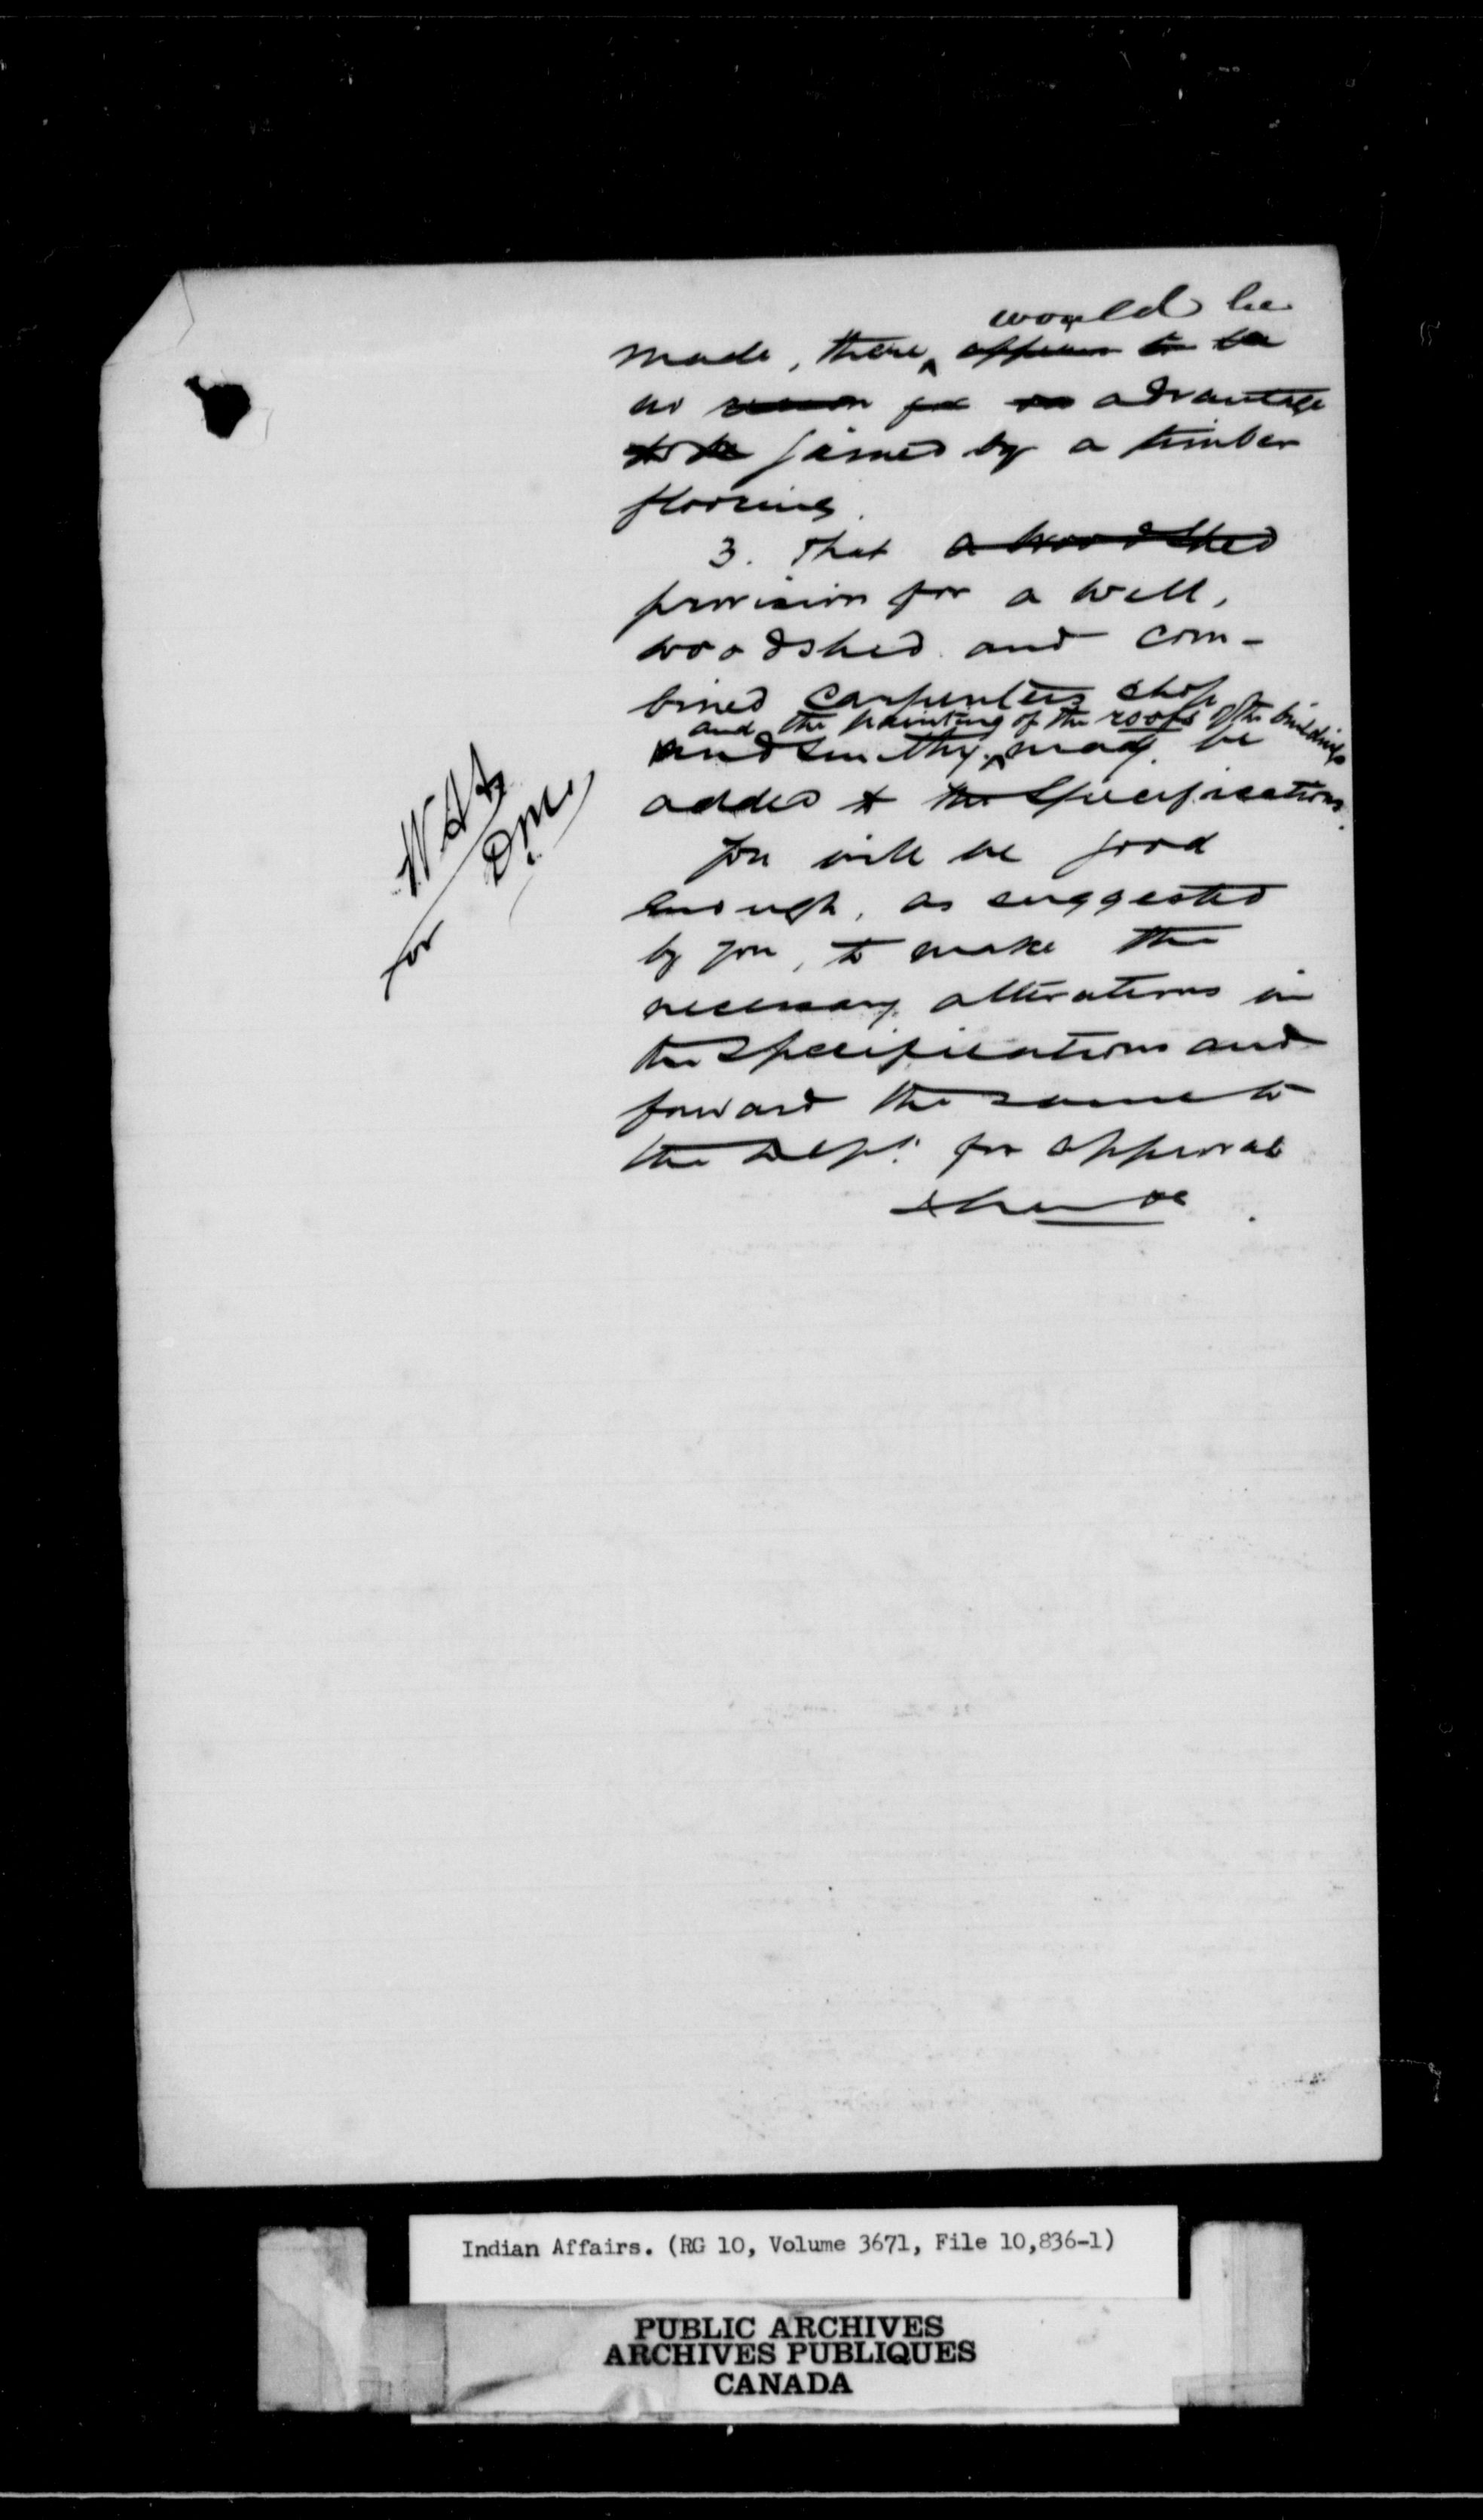 would be
made, there ^ appears to be
no reason for an advantage
to be gained by a timber
flooring.
3. That a woodshed
provision for a well,
woodshed and com-
bined carpenters shop
and the painting of the roofs of the buildings
and smithy ^ may be
added to the Specifications.
You will be good
enough, as suggested
by you, to make the
necessary alterations in
the Specifications and
forward the same to
the Dept. for approval
for
D.M.
Indian Affairs. (RG 10, Volume 3671, File 10,836-1)
PUBLIC ARCHIVES
ARCHIVES PUBLIQUES
CANADA